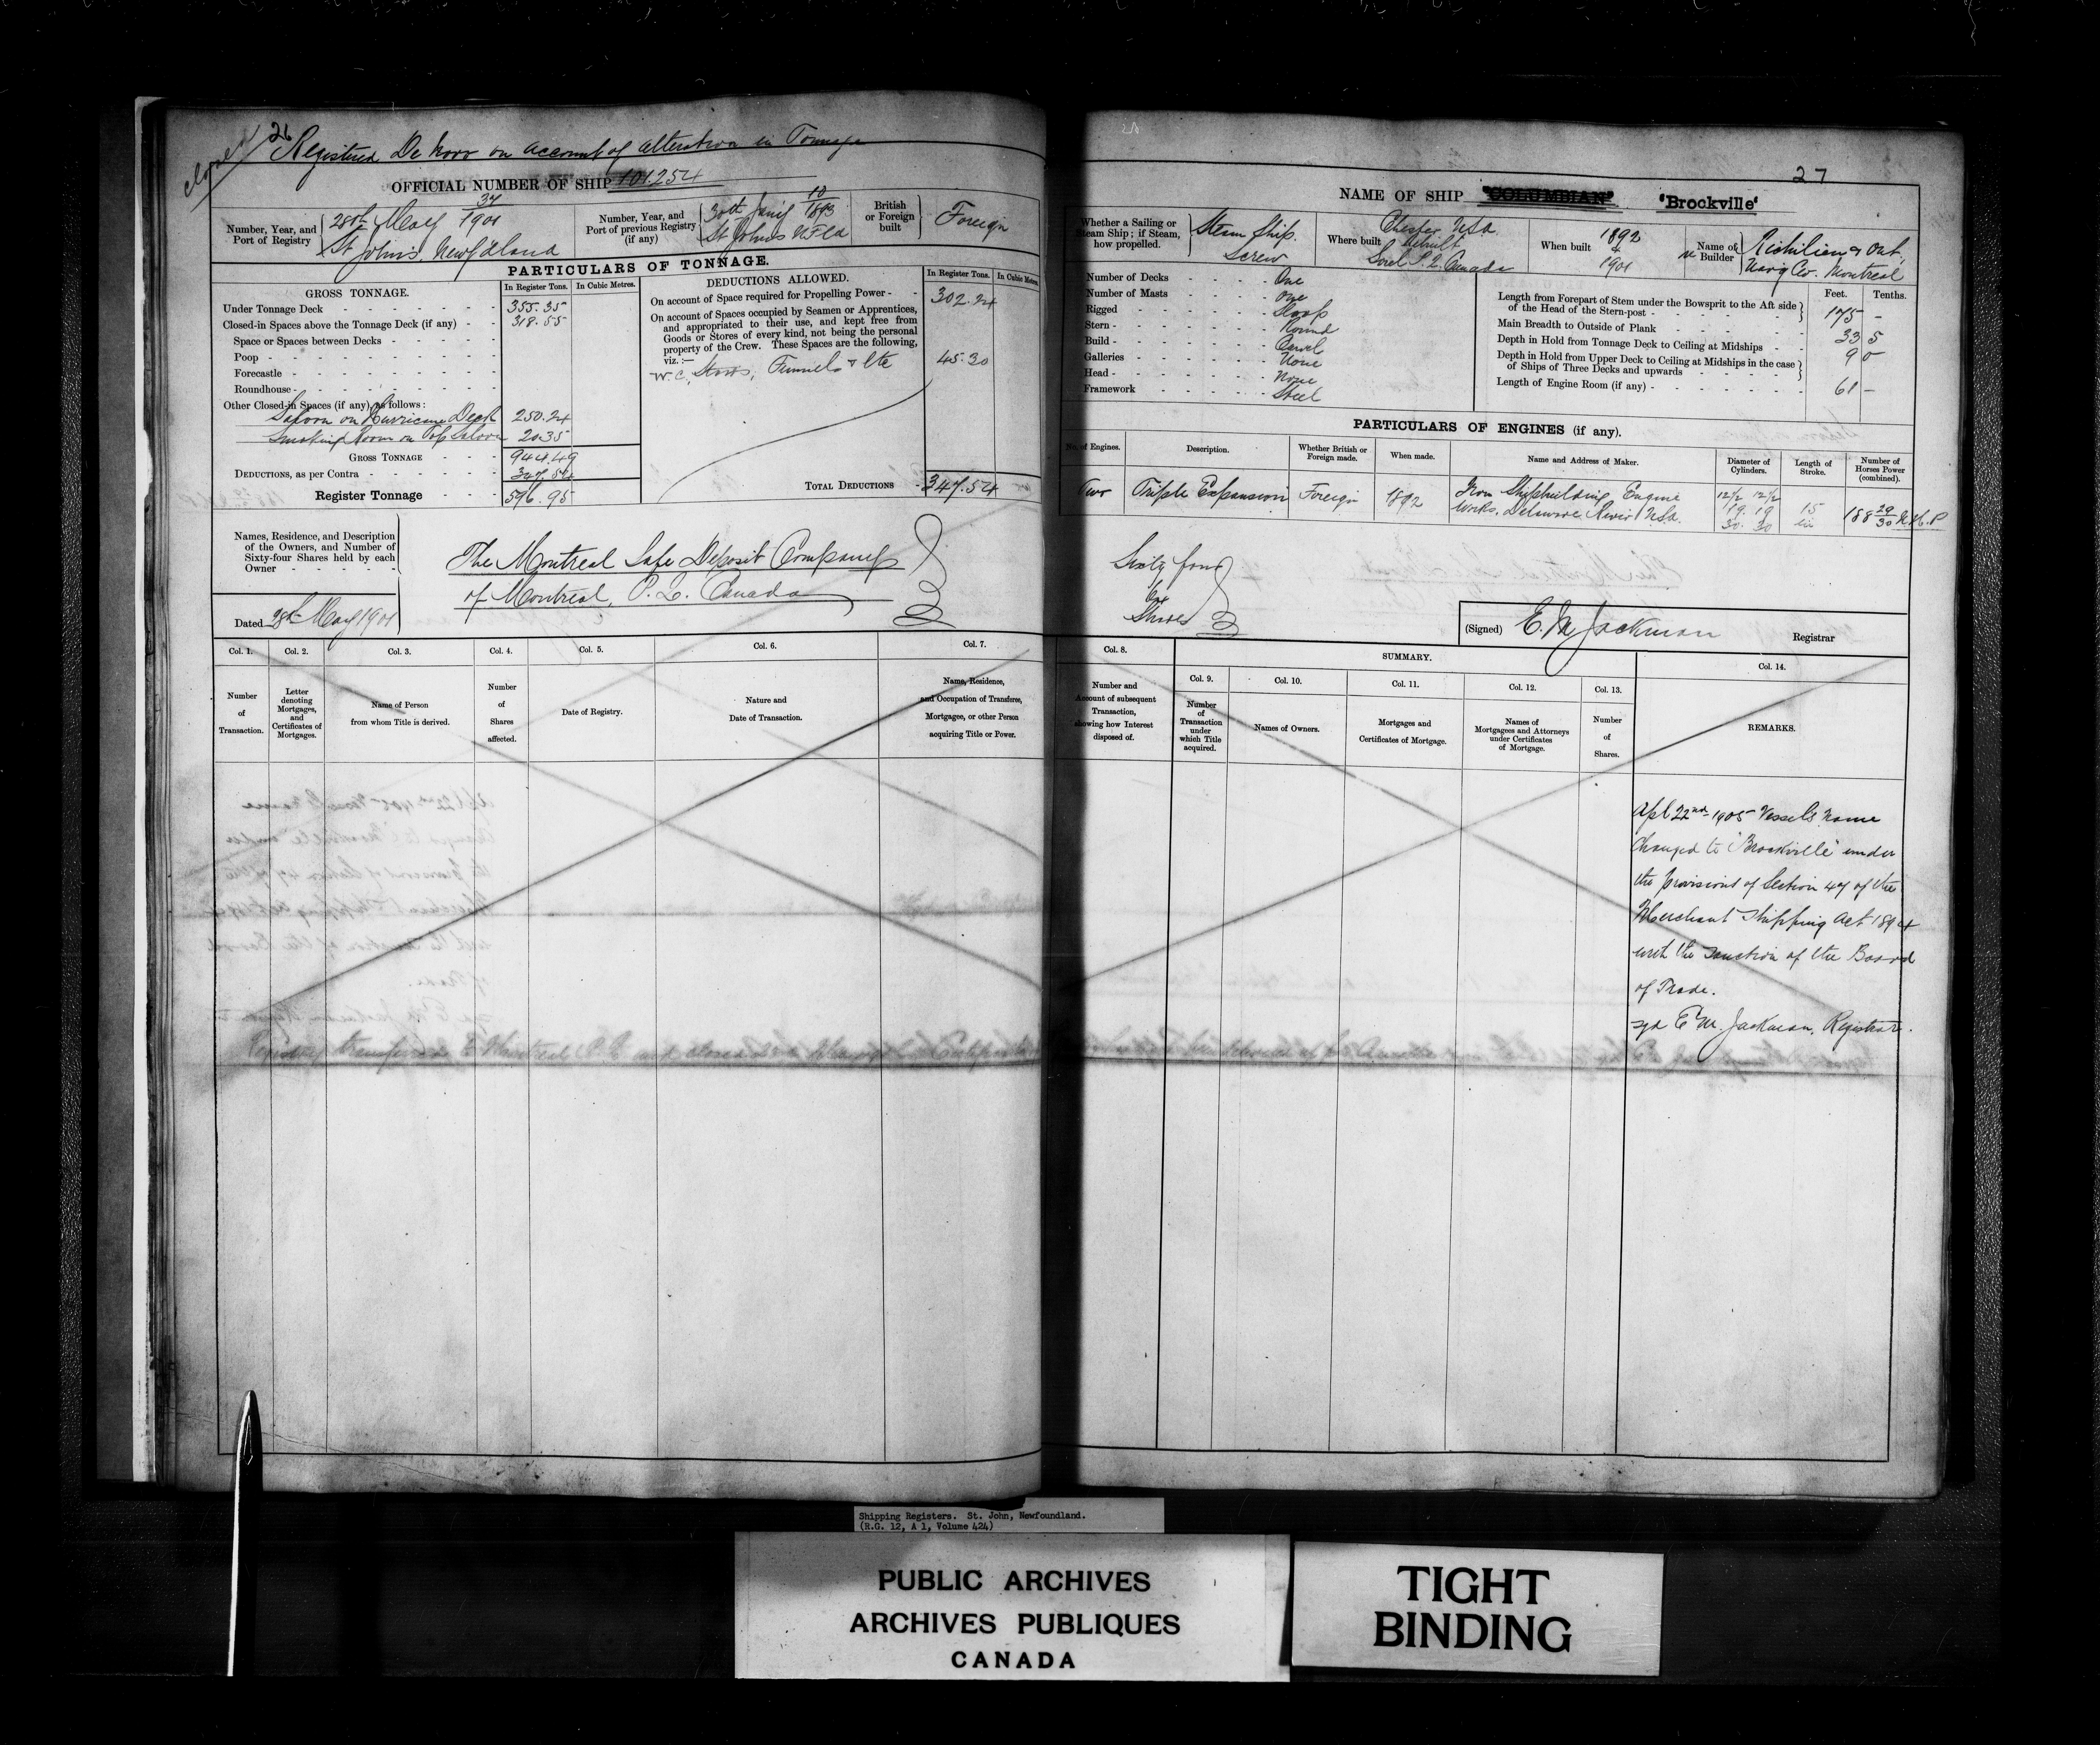 26
closed
Registered De Novo on account of alteration in Tonnage
OFFICIAL NUMBER OF SHIP 101.254
Number, Year, and Port of Registry
28th May 34/1901
St John's Newfdland
Number, Year, and Port of previous Registry (if any)
30th Jany 10/1893
St Johns NFld
British or Foreign built
Foreign
PARTICULARS OF TONNAGE.
GROSS TONNAGE.
In Register Tons.
In Cubic Metres.
Under Tonnage Deck 355.35
Closed-in Spaces above the Tonnage Deck (if any) 318.55
Space or Spaces between Decks
Poop
Forecastle
Roundhouse
Other Closed-in Spaces (if any), as follows:
Saloon on Hurricane Deck 250.24
Smoking Room on Top Saloon 20.35
GROSS TONNAGE 944.49
DEDUCTIONS, as per Contra 347.54
Register Tonnage 596.95
DEDUCTIONS ALLOWED.
In Register Tons.
In Cubic Metres.
On account of Space required for Propelling Power 302.24
On account of Spaces occupied by Seamen or Apprentices,
and appropriated to their use, and kept free from
Goods or Stores of every kind, not being the personal
property of the Crew. These Spaces are the following,
viz.:— 45.30
W.C., Funnels & Etc
TOTAL DEDUCTIONS 347.54
Names, Residence, and Description
of the Owners, and Number of
Sixty-four Shares held by each
Owner
The Montreal Safe Deposit Company
of Montreal, P.Q. Canada
Dated 28th May 1901
Col. 1. Number of Transaction.
Col. 2. Letter denoting Mortgages, and Certificates of Mortgages.
Col. 3. Name of Person from whom Title is derived.
Col. 4. Number of Shares affected.
Col. 5. Date of Registry.
Col. 6. Nature and Date of Transaction.
Col. 7. Name, Residence, and Occupation of Transferee, Mortgagee, or other Person acquiring Title or Power.
27
NAME OF SHIP "COLUMBIAN" "Brockville"
Whether a Sailing or Steam Ship; if Steam, how propelled.
Steam Ship.
Screw
Where built
Chester USA
Rebuilt
Sorel P.Q. Canada
When built
1892
+
1901
Name of Builder
Richilieu & Ont,
Navig Co. Montreal
Number of Decks One
Number of Masts One
Rigged Sloop
Stern Round
Build Carvel
Galleries None
Head None
Framework Steel
Feet. Tenths.
Length from Forepart of Stem under the Bowsprit to the Aft side of the Head of the Stern-post 175 -
Main Breadth to Outside of Plank 33 5
Depth in Hold from Tonnage Deck to Ceiling at Midships 9 0
Depth in Hold from Upper Deck to Ceiling at Midships in the case of Ships of Three Decks and upwards
Length of Engine Room (if any) 61 -
PARTICULARS OF ENGINES (if any).
No. of Engines.
Description.
Whether British or Foreign made.
When made.
Name and Address of Maker.
Diameter of Cylinders.
Length of Stroke.
Number of Horses Power (combined).
Two
Triple Expansion
Foreign
1892
Iron Shipbuilding Engine
Works. Delaware River USA.
12½ 12½
19. 19
30. 30
15
in
188 29/30 N.H.P
Sixty four
Shares
(Signed) E. M Jackman Registrar
Col. 8. Number and Account of subsequent Transaction, showing how Interest disposed of.
SUMMARY.
Col. 9. Number of Transaction under which Title acquired.
Col. 10. Names of Owners.
Col. 11. Mortgages and Certificates of Mortgage.
Col. 12. Names of Mortgagees and Attorneys under Certificates of Mortgage.
Col. 13. Number of Shares.
Col. 14. REMARKS.
Apl 22nd 1905 Vessels Name
Changed to "Brockville" under
the provisions of Section 47 of the
Merchant Shipping Act 1894
with the sanction of the Board
of Trade.
sgd E M. Jackman, Registrar.
Shipping Registers. St. John, Newfoundland.
(R.G. 12, A 1, Volume 424)
PUBLIC ARCHIVES
ARCHIVES PUBLIQUES
CANADA
TIGHT
BINDING